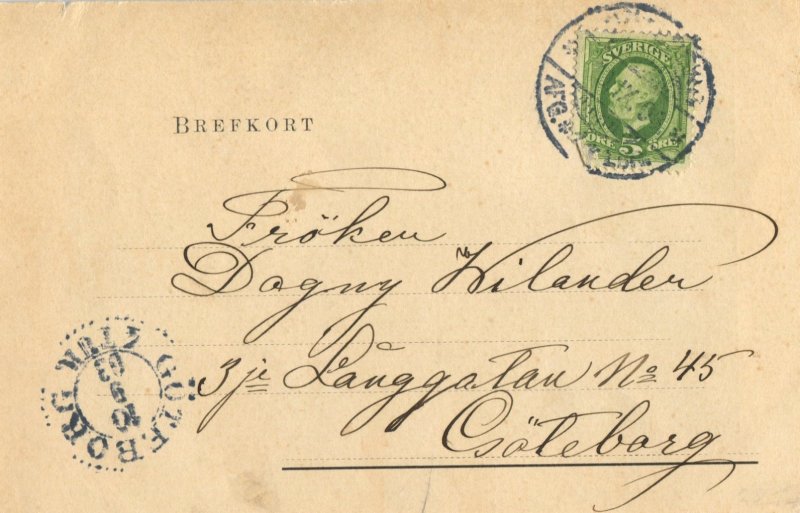 SVERIGE
5
ÖRE ÖRE
AFG.
BREFKORT
Fröken
Dagny Wilander
3je Långgatan No 45
Göteborg
GÖTEBORG